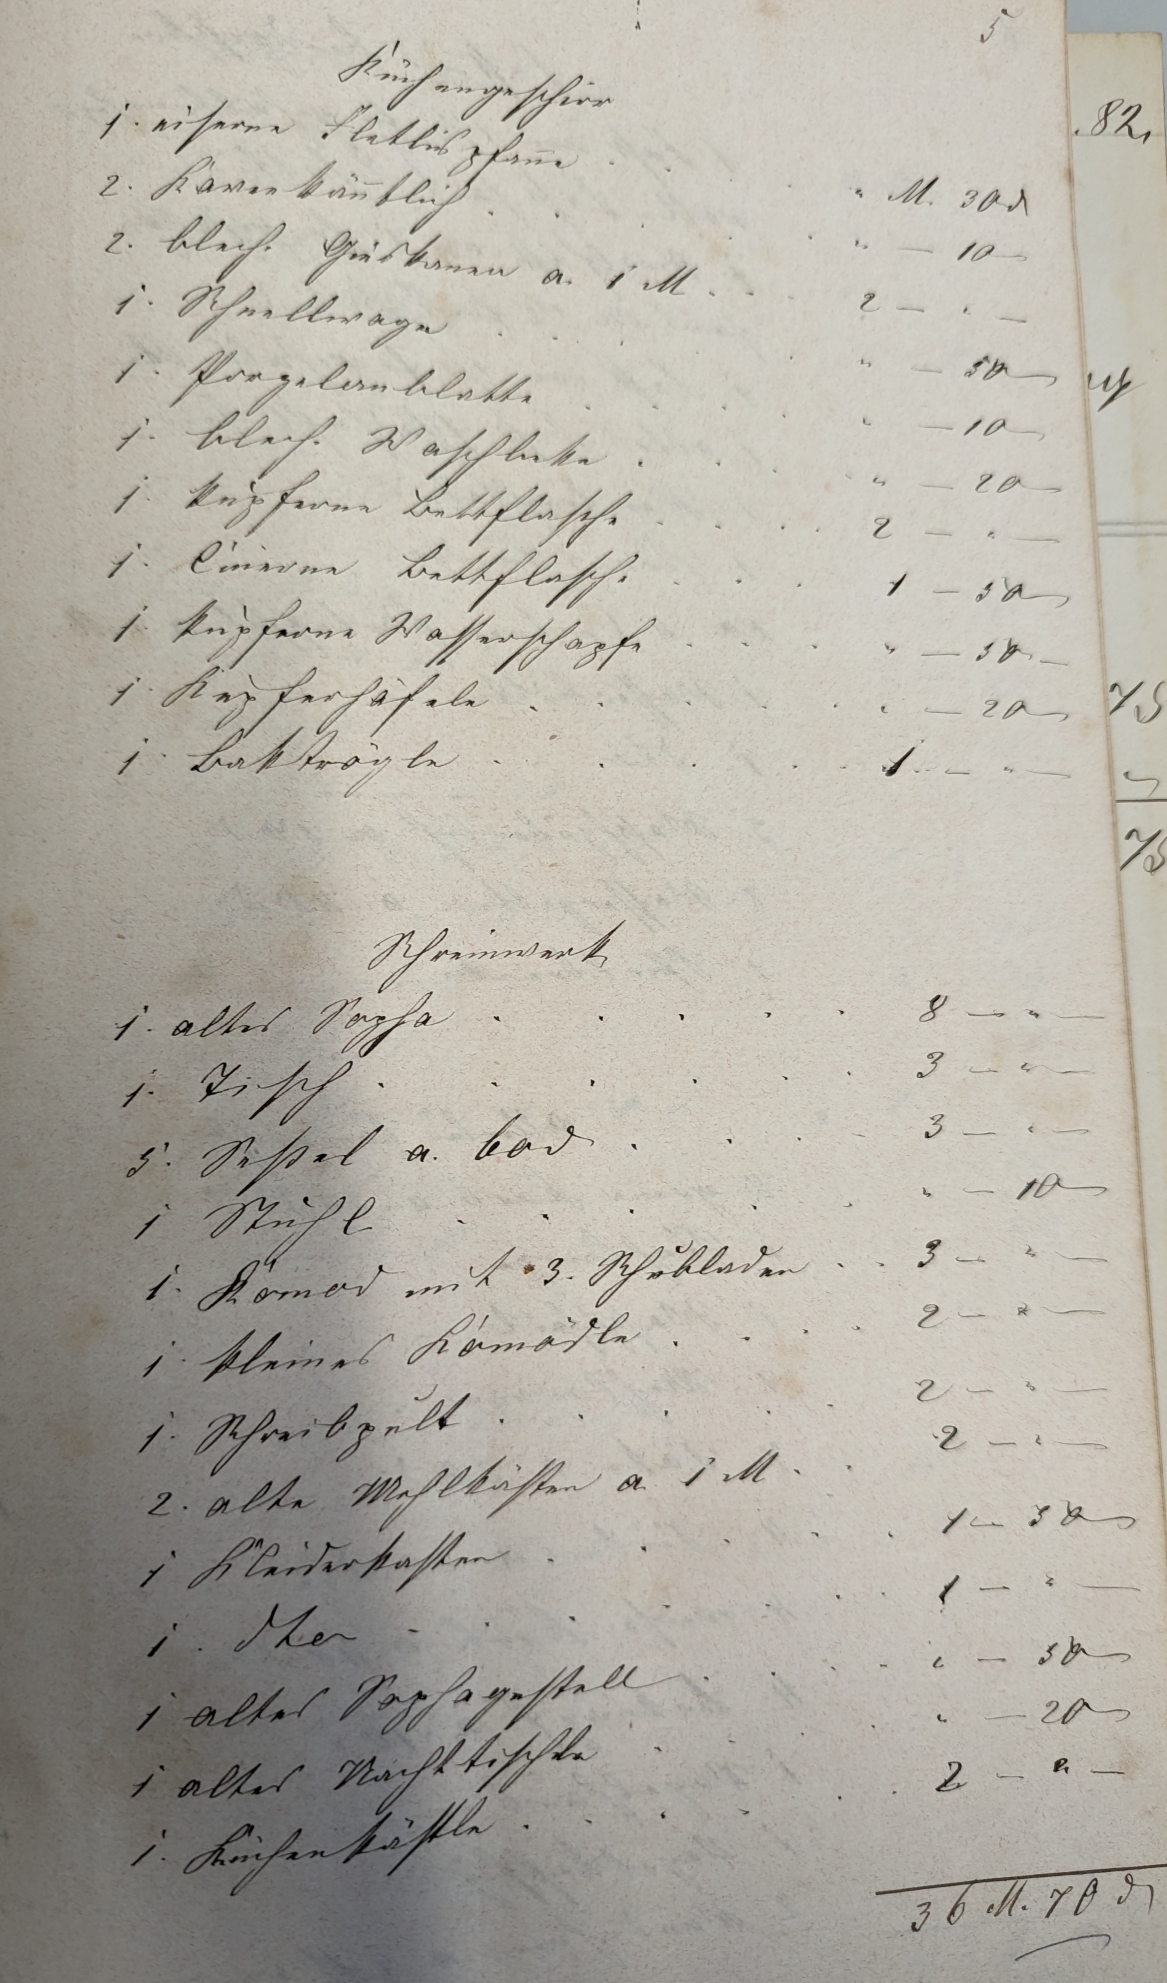 5
Küchengeschirr
1. eiserne pfanne . . " M. 30 d
2. . . . " — 10 —
2. blech. Gieskanen a. 1 M . . . 2 — " —
1. Schnellwage . . . " — 50 —
1. Porzelanblatte . . . . " — 10 —
1. blech. Waschbeke . . . " — 20 —
1. kupferne Bettflasche . . . . 2 — " —
1. Bettflasche . . . 1 — 50 —
1. kupferne Wasserschapfe . . . " — 50 —
1. Kupferhäfele . . . . . " — 20 —
1. Baktrögle . . . . . 1 — " —
Schreinwerk
1. altes Sopha . . . . . 8 — " —
1. Tisch . . . . . . 3 — " —
5. Seßel a. 60 d . . . 3 — " —
1 Stuhl . . . . . " — 10 —
1. Komod mit 3. Schubladen . . 3 — " —
1. kleines Komödle . . . . 2 — " —
1. Schreibpult . . . . . 2 — " —
2. alte Mehlkästen a. 1 M . . 2 — " —
1 Kleiderkasten . . . . . 1 — 50 —
1. dto . . . . . . 1 — " —
1 altes Sophagestell . . . . " — 50 —
1 altes Nachttischle . . . " — 20 —
1. Küchenkästle . . . . . 2 — " —
36 M. 70 d
82.
75
75